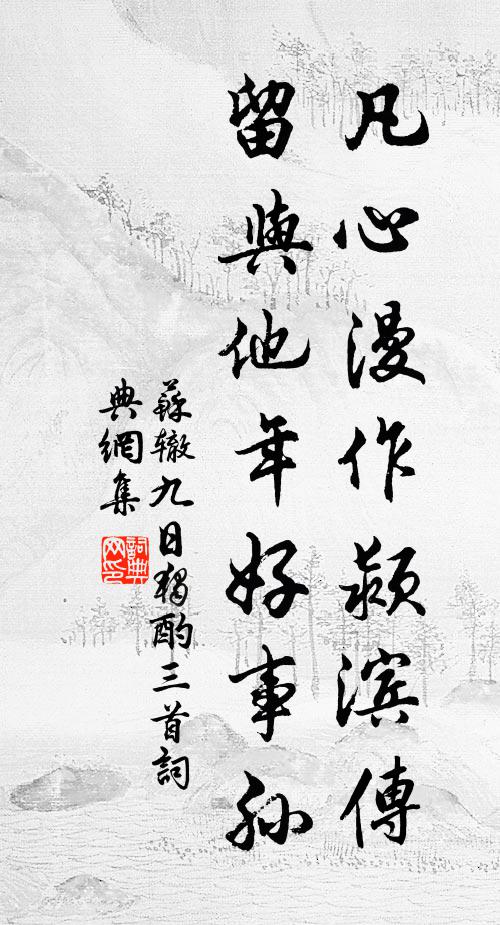 凡心漫作颍滨傳
留與他年好事孫
蘇辙九日独酌三首詞
典網集
詞典网印